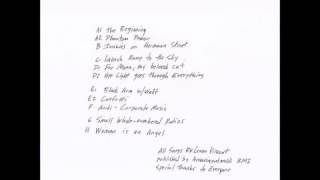 A1 The Beginning
A2 Phantom Power
B Junkies on Hermann Street
C Launch Ramp to the Sky
D1 For Mona, my beloved cat
D2 Her Light goes through Everything
E1 Black Arm w/Wolf
E2 Confetti
F Anti-Corporate Music
G Small Whole-numbered Ratios
H Woman is an Angel
All Songs by Loren
published by BMI
Special Thanks to Everyone